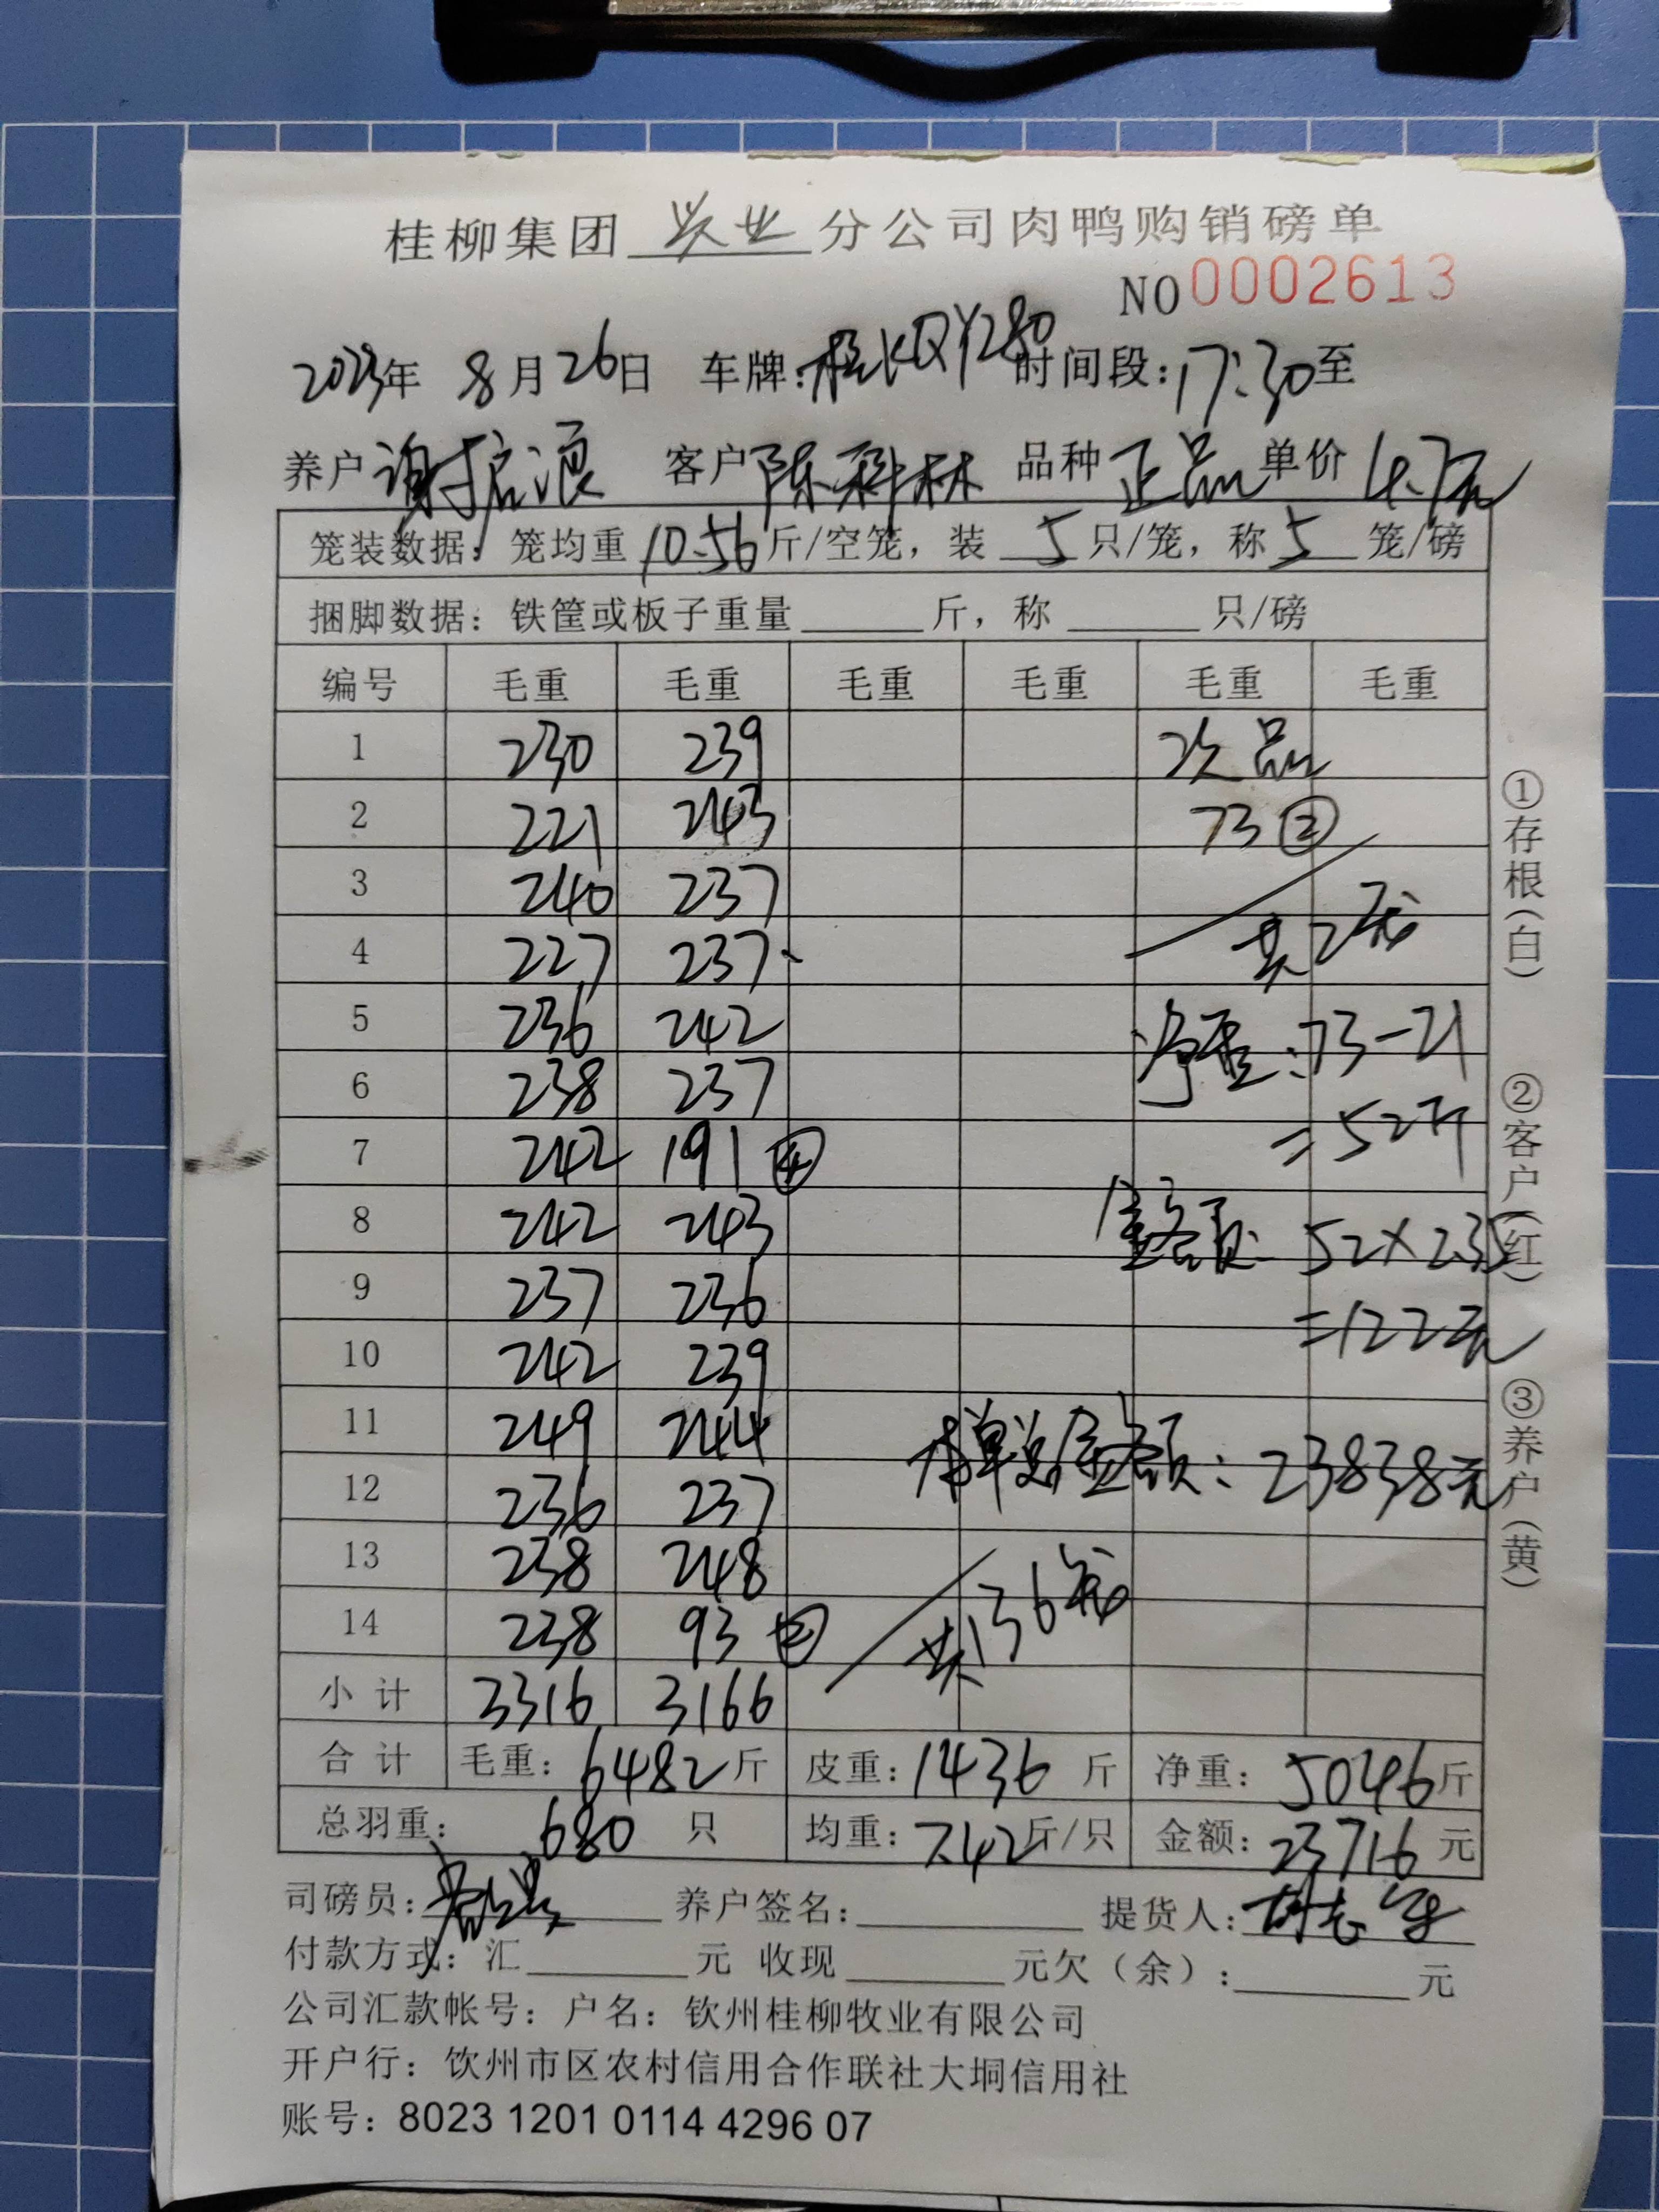 桂柳集团 兴业 分公司肉鸭购销磅单
NO 0002613
2023年 8月26日 车牌:桂KQY280 时间段:17:30至
养户 谢启源 客户 陈科林 品种 正品 单价 4.7元
笼装数据: 笼均重 10.56 斤/空笼, 装 5 只/笼, 称 5 笼/磅
捆脚数据: 铁筐或板子重量 斤, 称 只/磅
编号 毛重 毛重 毛重 毛重 毛重 毛重
1 230 239 次品
2 221 243 73 ②
3 240 237
4 227 237 共2笼
5 236 242 净重:73-21
6 238 237
7 242 191 ④ =52斤
8 242 243 金额: 52×2.35
9 237 236
10 242 239 =122元
11 249 244 本单总金额: 23838元
12 236 237
13 238 248
14 238 93 ② 共136笼
小计 3316 3166
合计 毛重: 6482斤 皮重: 1436 斤 净重: 5046斤
总羽重: 680 只 均重: 7.42斤/只 金额: 23716 元
司磅员: 养户签名: 提货人:
付款方式: 汇 元 收现 元欠(余): 元
公司汇款帐号: 户名: 钦州桂柳牧业有限公司
开户行: 饮州市区农村信用合作联社大垌信用社
账号: 8023 1201 0114 4296 07
①存根(白)
②客户(红)
③养户(黄)